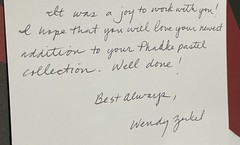 It was a joy to work with you!
I hope that you will love your newest
addition to your Phakke pastel
collection. Well done!
Best Always,
Wendy Zerkel